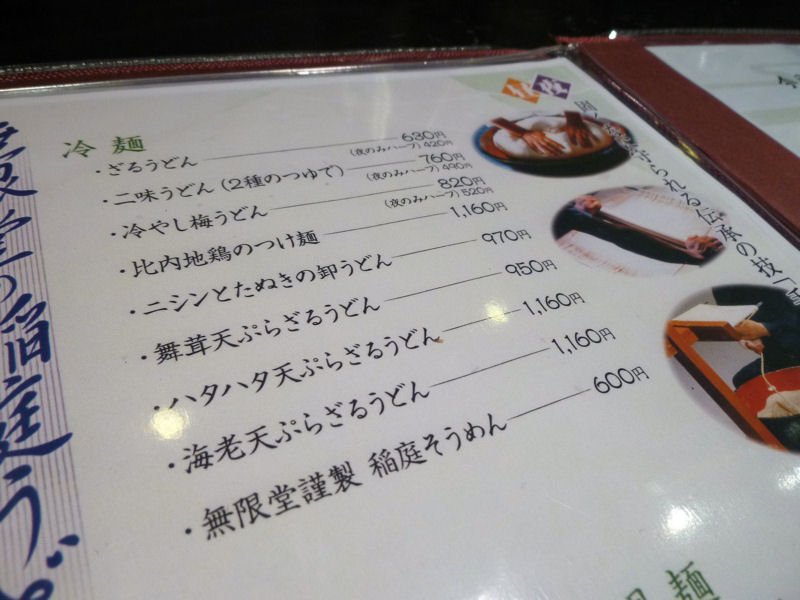 冷麺
・ざるうどん 630円
(夜のみハーフ) 420円
・二味うどん(2種のつゆで) 760円
(夜のみハーフ) 490円
・冷やし梅うどん 820円
(夜のみハーフ) 520円
・比内地鶏のつけ麺 1,160円
・ニシンとたぬきの卸うどん 970円
・舞茸天ぷらざるうどん 950円
・ハタハタ天ぷらざるうどん 1,160円
・海老天ぷらざるうどん 1,160円
・無限堂謹製 稲庭そうめん 600円
られる伝承の技「
堂の稲庭うど
麺